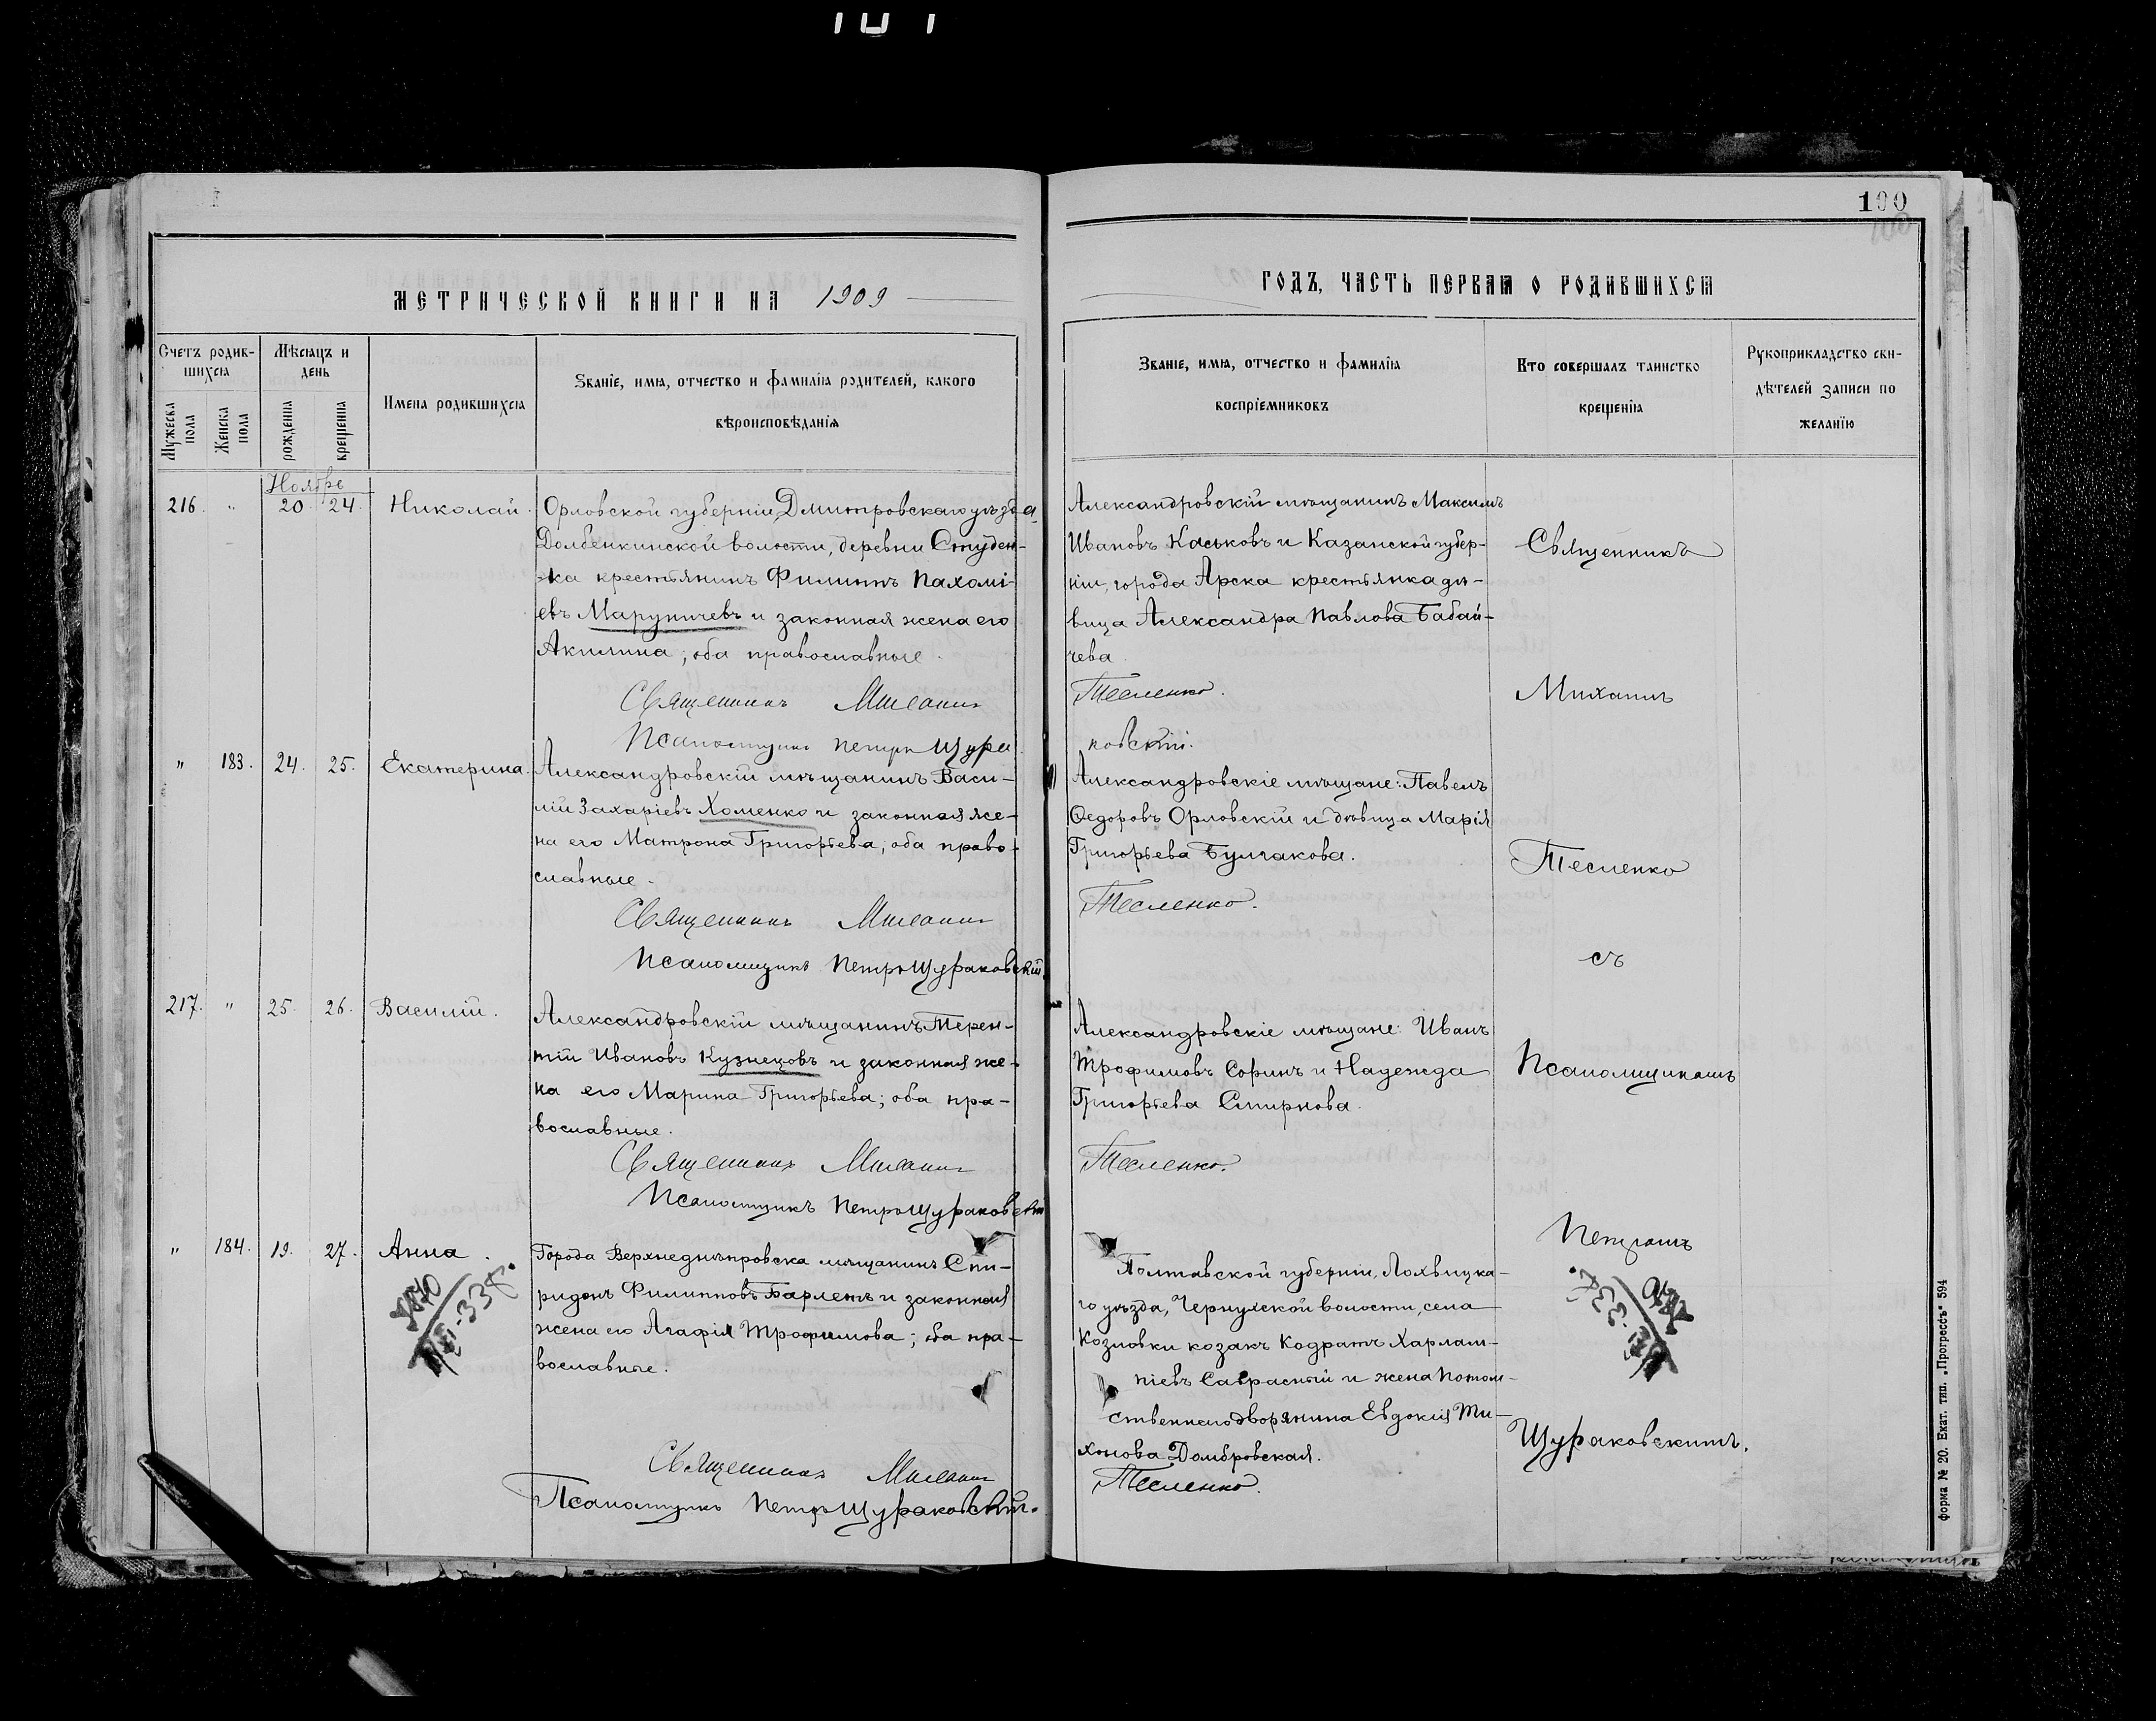 101
100
100
МЕТРИЧЕСКОЙ КНИГИ НА 1909
ГОДЪ, ЧАСТЬ ПЕРВАЯ О РОДИВШИХСЯ
Счетъ родив-
шихся
Мѣсяцъ и
день
Мужеска
пола
Женска
пола
рожденія
крещенія
Имена родившихся
Званіе, имя, отчество и фамилія родителей, какого
вѣроисповѣданія
Званіе, имя, отчество и фамилія
воспріемниковъ
Кто совершалъ таинство
крещенія
Рукоприкладство сви-
дѣтелей записи по
желанію
Ноябрь
216. " 20. 24. Николай.
Орловской губерніи, Дмитровскаго уѣзда,
Долбенкинской волости, деревни Студен-
ка крестьянинъ Филиппъ Пахомі-
евъ Маруничевъ и законная жена его
Акилина; оба православные.
Священникъ Михаилъ
Псаломщикъ Петръ Щура
Александровскій мѣщанинъ Максимъ
Ивановъ Каськовъ и Казанской губер-
ніи, города Арска крестьянка дѣ-
вица Александра Павлова Бабай-
чева.
Тесленко.
ковскій.
" 183. 24. 25. Екатерина.
Александровскій мѣщанинъ Васи-
лій Захаріевъ Хоменко и законная же-
на его Матрона Григорьева; оба право-
славные.
Священникъ Михаилъ
Псаломщикъ Петръ Щураковскій
Александровскіе мѣщане: Павелъ
Ѳедоровъ Орловскій и дѣвица Марія
Григорьева Булгакова.
Тесленко.
217. " 25. 26. Василій.
Александровскій мѣщанинъ Терен-
тій Ивановъ Кузнецовъ и законная же-
на его Марина Григорьева; оба пра-
вославные.
Священникъ Михаилъ
Псаломщикъ Петръ Щураковскій
Александровскіе мѣщане: Иванъ
Трофимовъ Соринъ и Надежда
Григорьева Смирнова.
Тесленко.
" 184. 19. 27. Анна.
Города Верхнеднѣпровска мѣщанинъ Спи-
ридонъ Филипповъ Барлетъ и законная
жена его Агафія Трофимова; оба пра-
вославные.
Священникъ Михаилъ
Псаломщикъ Петръ Щураковскій.
Полтавской губерніи, Лохвицка-
го уѣзда, Чернухской волости, села
Козловки козакъ Кодратъ Харлам-
піевъ Саврасный и жена потом-
ственнаго дворянина Евдокія Ти-
хонова Домбровская.
Тесленко.
Священникъ
Михаилъ
Тесленко
съ
Псаломщикомъ
Петромъ
Щураковскимъ.
Форма № 20. Екат. тип. „Прогрессъ" 594